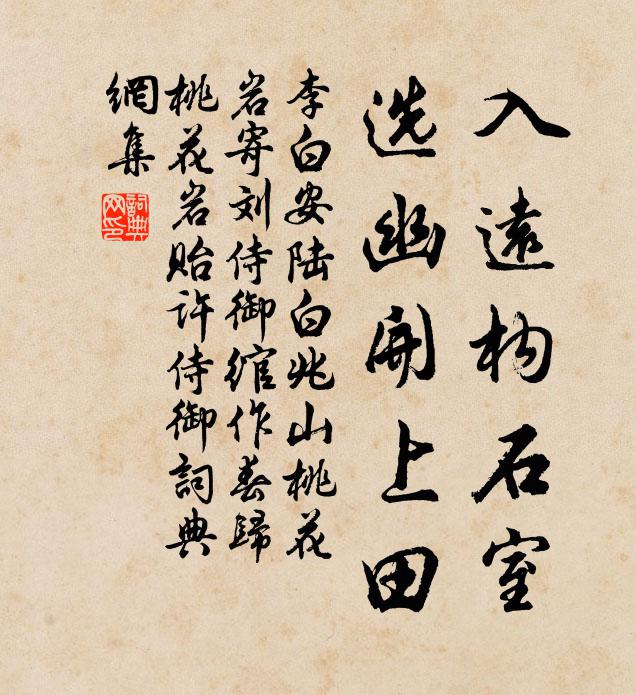 入遠构石室
选幽開上田
李白安陆白兆山桃花
岩寄刘侍御绾作春歸
桃花岩贻许侍御詞典
網集
詞典
网印